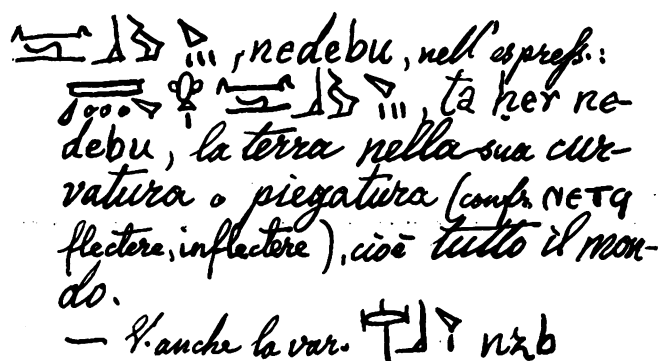 , nedebu, nell'espress.:
, ta ḥer ne-
debu, la terra nella sua cur-
vatura o piegatura (confr. ⲚⲈⲦϤ
flectere, inflectere), cioè tutto il mon-
do.
— V. anche la var. nzb